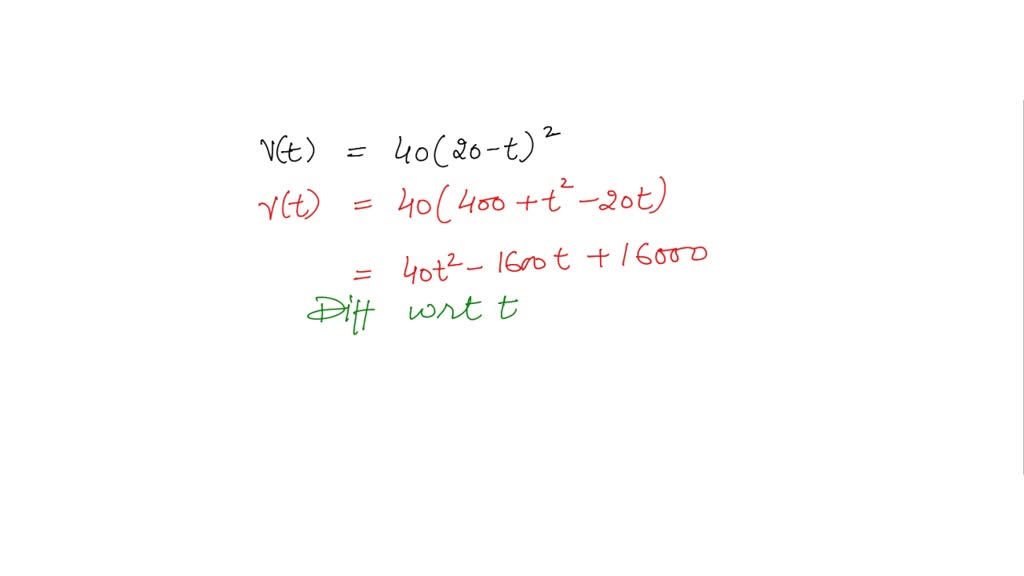 V(t) = 40(20-t)²
V(t) = 40(400 + t² - 20t)
= 40t² - 1600t + 16000
Diff wrt t